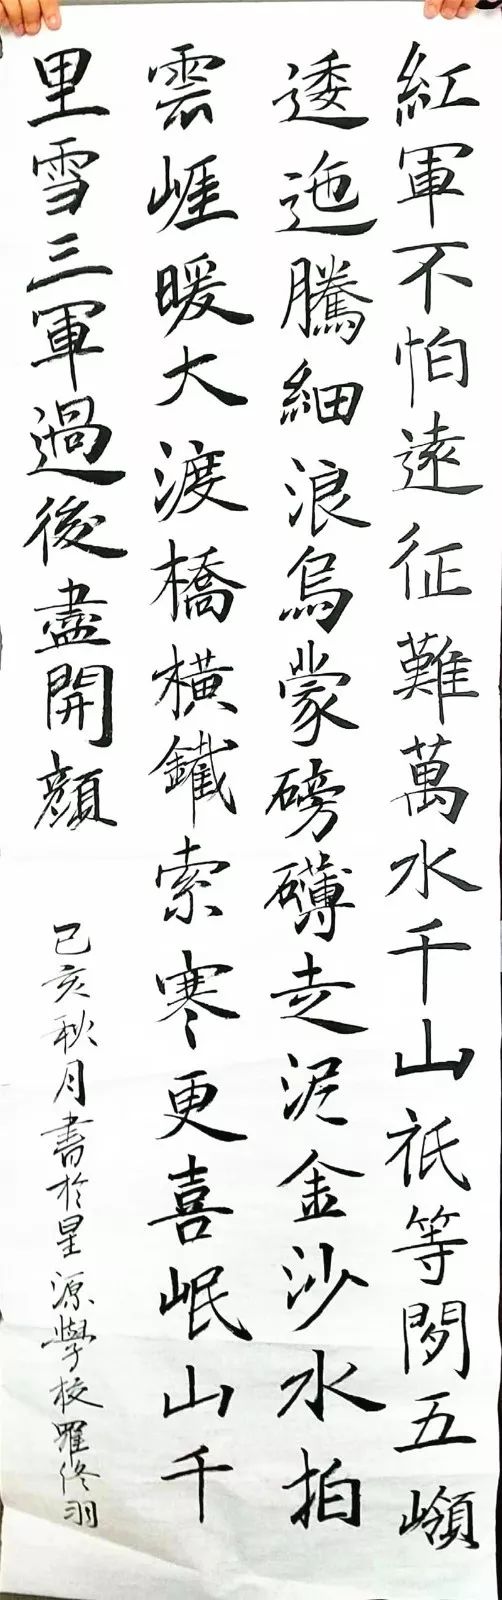 紅軍不怕遠征難萬水千山祇等閒五嶺
逶迤騰細浪烏蒙磅礴走泥金沙水拍
雲崕暖大渡橋橫鐵索寒更喜岷山千
里雪三軍過後盡開顏
己亥秋月書於星源學校羅佟羽